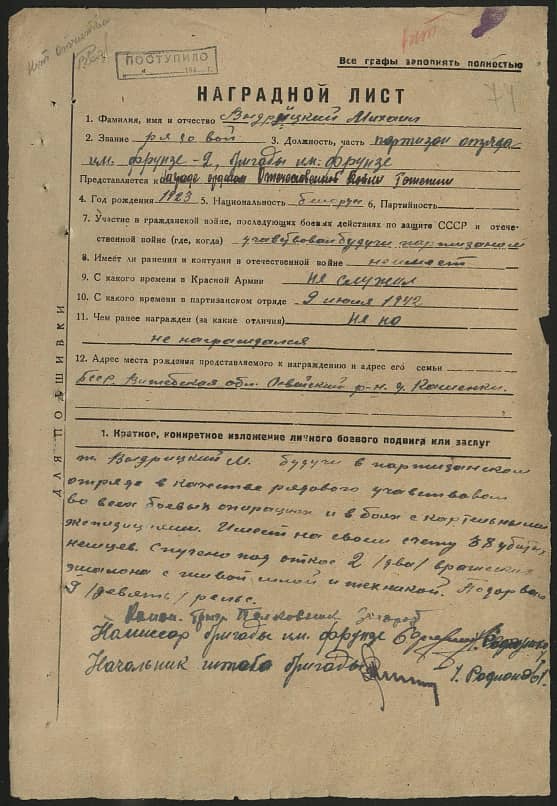 ПОСТУПИЛО
Все графы заполнять полностью
74
НАГРАДНОЙ ЛИСТ
1. Фамилия, имя и отчество Выдрицкий Михаил
2. Звание рядовой 3. Должность, часть партизан отряда
им. Фрунзе-2, бригады им. Фрунзе
Представляется к ордену Отечественной Войны
4. Год рождения 1923 5. Национальность белорус 6. Партийность
7. Участие в гражданской войне, последующих боевых действиях по защите СССР и отече-
ственной войне (где, когда) участвовал будучи партизаном
8. Имеет ли ранения и контузии в отечественной войне не имеет
9. С какого времени в Красной Армии не служил
10. С какого времени в партизанском отряде 9 июня 1942
11. Чем ранее награжден (за какие отличия)
не награждался
12. Адрес места рождения представляемого к награждению и адрес его семьи
БССР Витебская обл. р-н. д.
ДЛЯ ПОДШИВКИ
1. Краткое, конкретное изложение личного боевого подвига или заслуг
т. Выдрицкий М. будучи в партизанском
отряде в качестве рядового участвовал
во всех боевых операциях и в боях с карательными
экспедициями. Имеет на своем счету 38 убитых
немцев. Спущено под откос 2 /два/ вражеских
эшелона с живой силой и техникой. Подорвал
9 /девять/ рельс.
Полковник
Комиссар бригады им. Фрунзе
Начальник штаба бригады Родионов